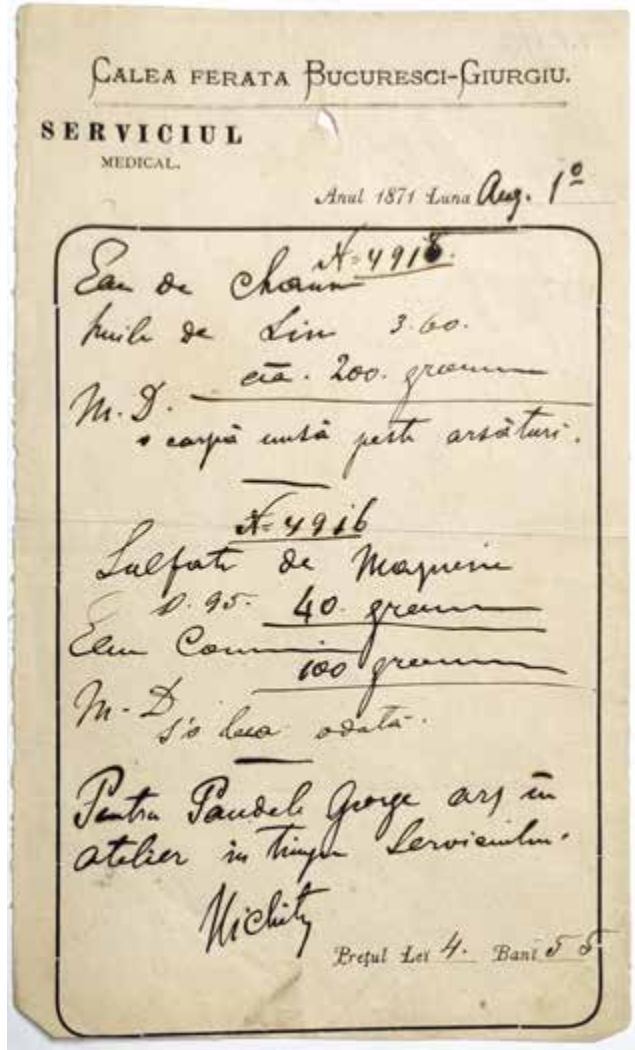 CALEA FERATA BUCURESCI-GIURGIU.
SERVICIUL
MEDICAL.
Anul 1871 Luna Aug. 1º
N= 4915.
Eau de Chaux
huile de Lin 3.60.
aā. 200. gramme
M.D.
o carpă unsă peste arsături.
N= 4916
Sulfate de Magnesie
0.95. 40. gramme
Eau Commune
100 gramme
M-D
s'o lua odată.
Pentru Pandele George ars în
atelier in timpu Serviciului.
Prețul Lei 4. Bani 55